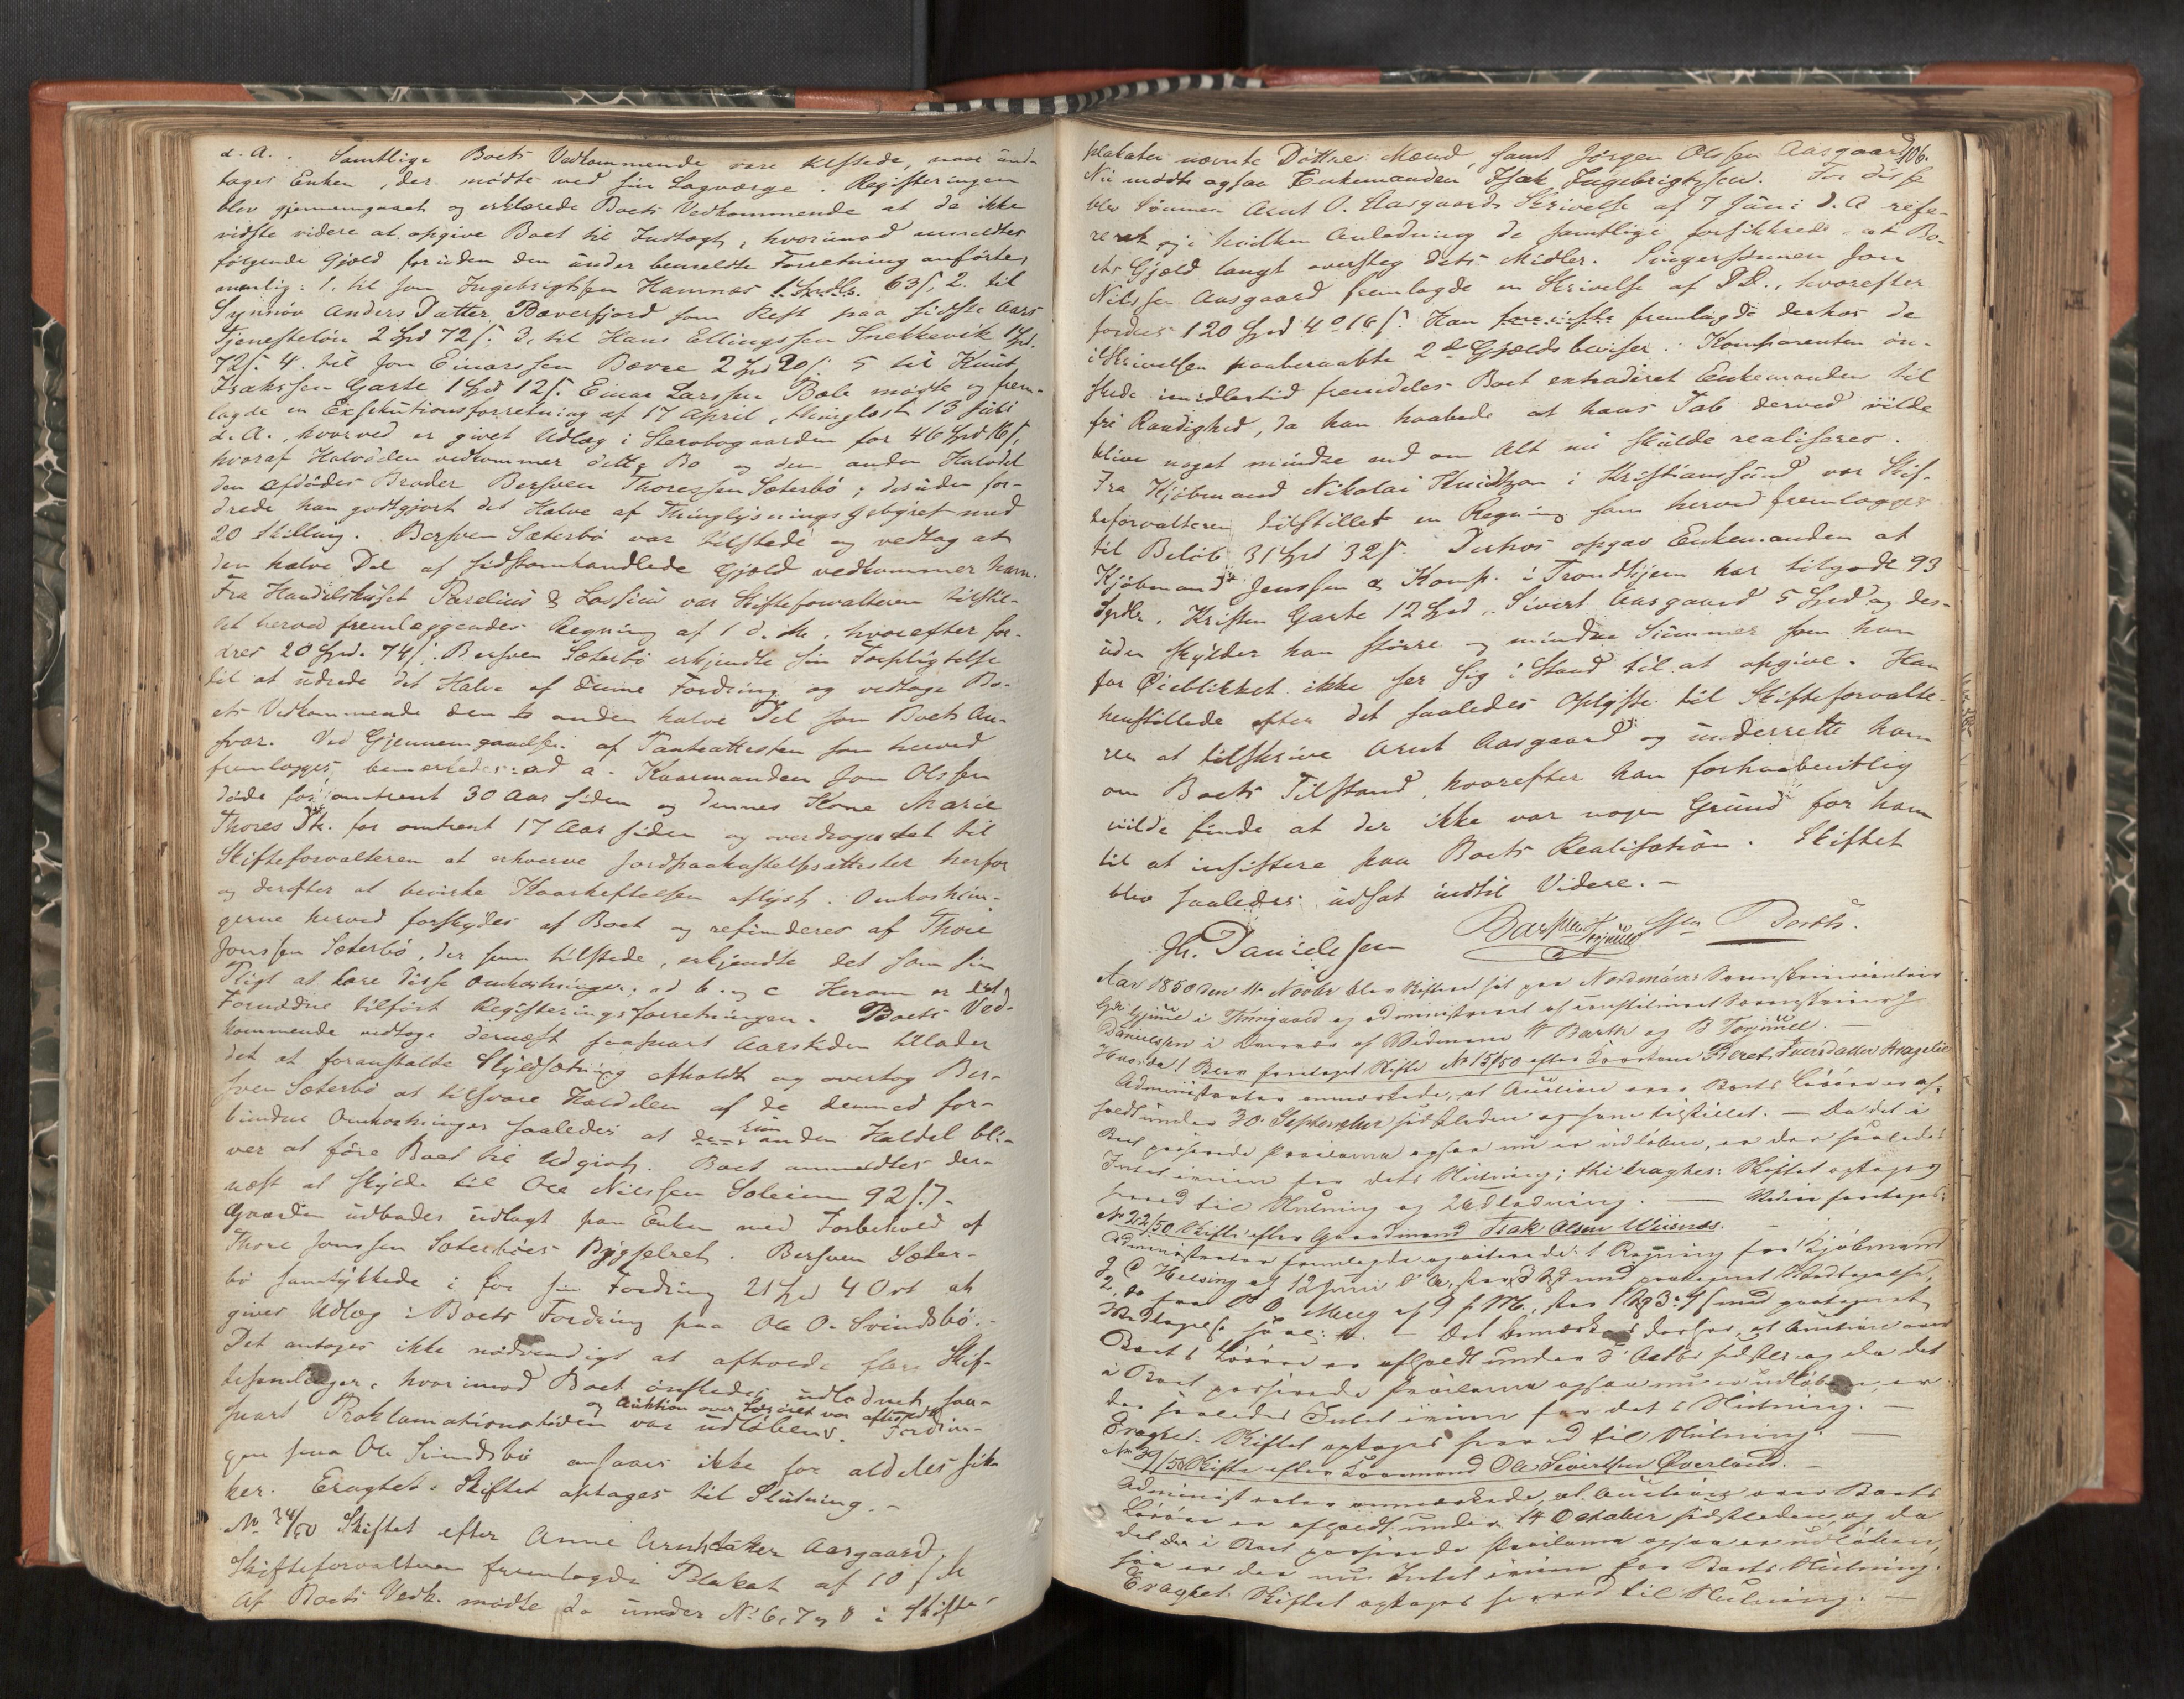 d. A. Samtlige Boets Vedkommende vare tilstede, naar und-
tages Enken, der mødte ved sin Lagværge. Registeringen
blev gjennemgaaet og erklærede Boets Vedkommende at de ikke
vidste videre at opgive Boet til Indtægt, hvorimod anmeldtes
følgende Gjæld foruden den under bemeldte Forretning anførte,
nemlig: 1, til Jon Ingebrigtsen Hamnes 1 Spdlr. 63 s, 2. til
Synnøv Anders Datter Bæverfjord som Rest paa sidste Aars
Tjenesteløn 2 Spd 72 s. 3, til Hans Ellingssen Snekkevik 1 Spd.
72 s. 4. til Jon Einarssen Bævre 2 Spd 20 s. 5 til Knut
Isakssen Garte 1 Spd 12 s. Einar Larssen Bøle mødte og frem-
lagde en Exsekutionsforretning af 17 April, thinglæst 13 Juli
d. A., hvorved er givet Udlæg i Sterbogaarden for 46 Spd 16 s,
hvoraf Halvdelen vedkommer dette Bo og den anden Halvdel
den Afdødes Broder Bersven Thoressen Sæterbø; desuden for-
drede han godtgjort det Halve af Thinglysningsgebyret med
20 Skilling. Bersven Sæterbø var tilstede og vedtog at
den halve Del af sidstomhandlede Gjæld vedkommer ham.
Fra Handelshuset Parelius & Lossius var Skifteforvalteren tilstil-
let herved fremlæggendes Regning af 1 d. M., hvorefter for-
dres 20 Spd. 74 s. Bersven Sæterbø erkjendte sin Forpligtelse
til at udrede det Halve af denne Fordring og vedtoge Bo-
ets Vedkommende den anden halve Del som Boets An-
svar. Ved Gjennemgaaelsen af Panteattesten som herved
fremlægges, bemærkedes: ad a. Kaarmanden Jon Olssen
døde for omtrent 30 Aar siden og dennes Kone Marie
Thores Dtr. for omtrent 17 Aar siden og overdroges det til
Skifteforvalteren at erhverve Jordpaakastelsesattester herfor
og derefter at bevirke Kaarheftelsen aflyst. Omkostnin-
gerne herved forskydes af Boet og refunderes af Thore
Jonssen Sæterbø, der som tilstede, erkjendte det som sin
Pligt at bære disse Omkostninger; ad b. og c Herom er det
Fornødne tilført Registeringsforretningen. Boets Ved-
kommende vedtoge dernæst saasnart Aarstiden tillader
det at foranstalte Skyldsætning afholdt og overtog Ber-
sven Sæterbø at tilsvare Halvdelen af de dermed for-
bundne Omkostninger saaledes at den anden Haldel bli-
ver at føre Boet til Udgivt. Boet anmeldtes der-
næst at skylde til Ole Nilssen Soleim 92 s. 7.
Gaarden udbades udlagt paa Enken med Forbehold af
Thore Jonssen Sæterbøes Bygselret. Bersven Sæter-
bø samtykkede i for sin Fordring 21 Spd 4 Ort at
gives Udlæg i Boets Fordring paa Ole O. Svindsbø.-
Det antoges ikke nødvendigt at afholde flere Skif-
tesamlinger, hvorimod Boet ønskedes udlodnet saa-
snart Proklamationstiden var udløben og Auktion over Løsøret var afholdt. Fordrin-
gen paa Ole Svindsbø ansaaes ikke for aldeles sik-
ker. Eragtet: Skiftet optages til Slutning.-
No 24/50 Skiftet efter Anne Arntdatter Aasgaard,
Skifteforvalteren fremlagde Plakat af 10 f. M.
Af Boets Vedk. mødte de under No 6, 7 og 8 i Skifte-
106.
plakaten nævnte Døttres Mænd, samt Jørgen Olssen Aasgaard.
Nu mødte ogsaa Enkemanden Isak Ingebrigtssen. For disse
blev Sønnen Arnt O. Aasgaards Skrivelse af 7 Juni d. A refe-
reret og i hvilken Anledning de samtlige forsikkrede at Bo-
ets Gjæld langt oversteg dets Midler. Svigersønnen Jon
Nilssen Aasgaard fremlagde en Skrivelse af D.D., hvorefter
fordres 120 Spd 4 o 16 s. Han fremlagde derhos de
i Skrivelsen paaberaabte 2de Gjældsbeviser. Komparenten øn-
skede imidlertid fremdeles Boet extraderet Enkemanden til
fri Raadighed, da han haabede at hans Tab derved vilde
blive noget mindre end om Alt nu skulde realiseres.
Fra Kjøbmand Nikolai Knudtzon i Kristianssund var Skif-
teforvalteren tilstillet en Regning som herved fremlægges
til Beløb 31 Spd 32 s. Derhos opgav Enkemanden at
Kjøbmand Jenssen & Komp. i Trondhjem har tilgode 93
Spdlr. Kristen Garte 12 Spd. Sivert Aasgaard 5 Spd og des-
uden skylder han større og mindre Summer som han
for Øieblikket ikke ser sig i Stand til at opgive. Han
henstillede efter det saaledes Oplyste til Skifteforvalte-
ren at tilskrive Arnt Aasgaard og underrette ham
om Boets Tilstand, hvorefter han forhaabentlig
vilde finde at der ikke var nogen Grund for ham
til at insistere paa Boets Realisation. Skiftet
blev saaledes udsat indtil Videre.-
H. Danielssen
Aar 1850 den 11 Novbr blev Skifteret sat paa Nordmøers Sorenskriver
Danielssen i Nærvær af Vidnerne
Hvorda! Blev foretaget Skifte No 15/50 efter Beret Iversdatter
Administrator anmærkede, at Auction over Boets Løsøre er af-
holdt under 30. September sidstleden og som tilstillet. - Da det i
Boet passerede Proclama ogsaa nu er udløben, er der saaledes
Intet iveien for dets Slutning; thi eragtes: Skiftet optages
herved til Slutning og Udlodning. - Videre foretages:
No 22/50 Skifte efter Gaardmand Isak Olsen Wiisnæs. -
Administrator fremlagde 1 Regning fra Kjøbmand
Det bemærkes derhos, at Auction over
Boets Løsøre er afholdt under 3 Octbr sidstl. og da det
i Boet passerede Proclama ogsaa nu er udløben, er
der saaledes Intet iveien for det's Slutning. -
Eragtet: Skiftet optages herved til Slutning. -
No 29/50 Skifte efter Ole Sivertsen Øverland. -
Administrator anmærkede, at Auction over Boets
Løsøre er afholdt under 14 October sidstleden, og da
det der i Boet passerede Proclama ogsaa er udløben,
saa er der nu Intet iveien for Boets Slutning.
Eragtet: Skiftet optages herved til Slutning. -